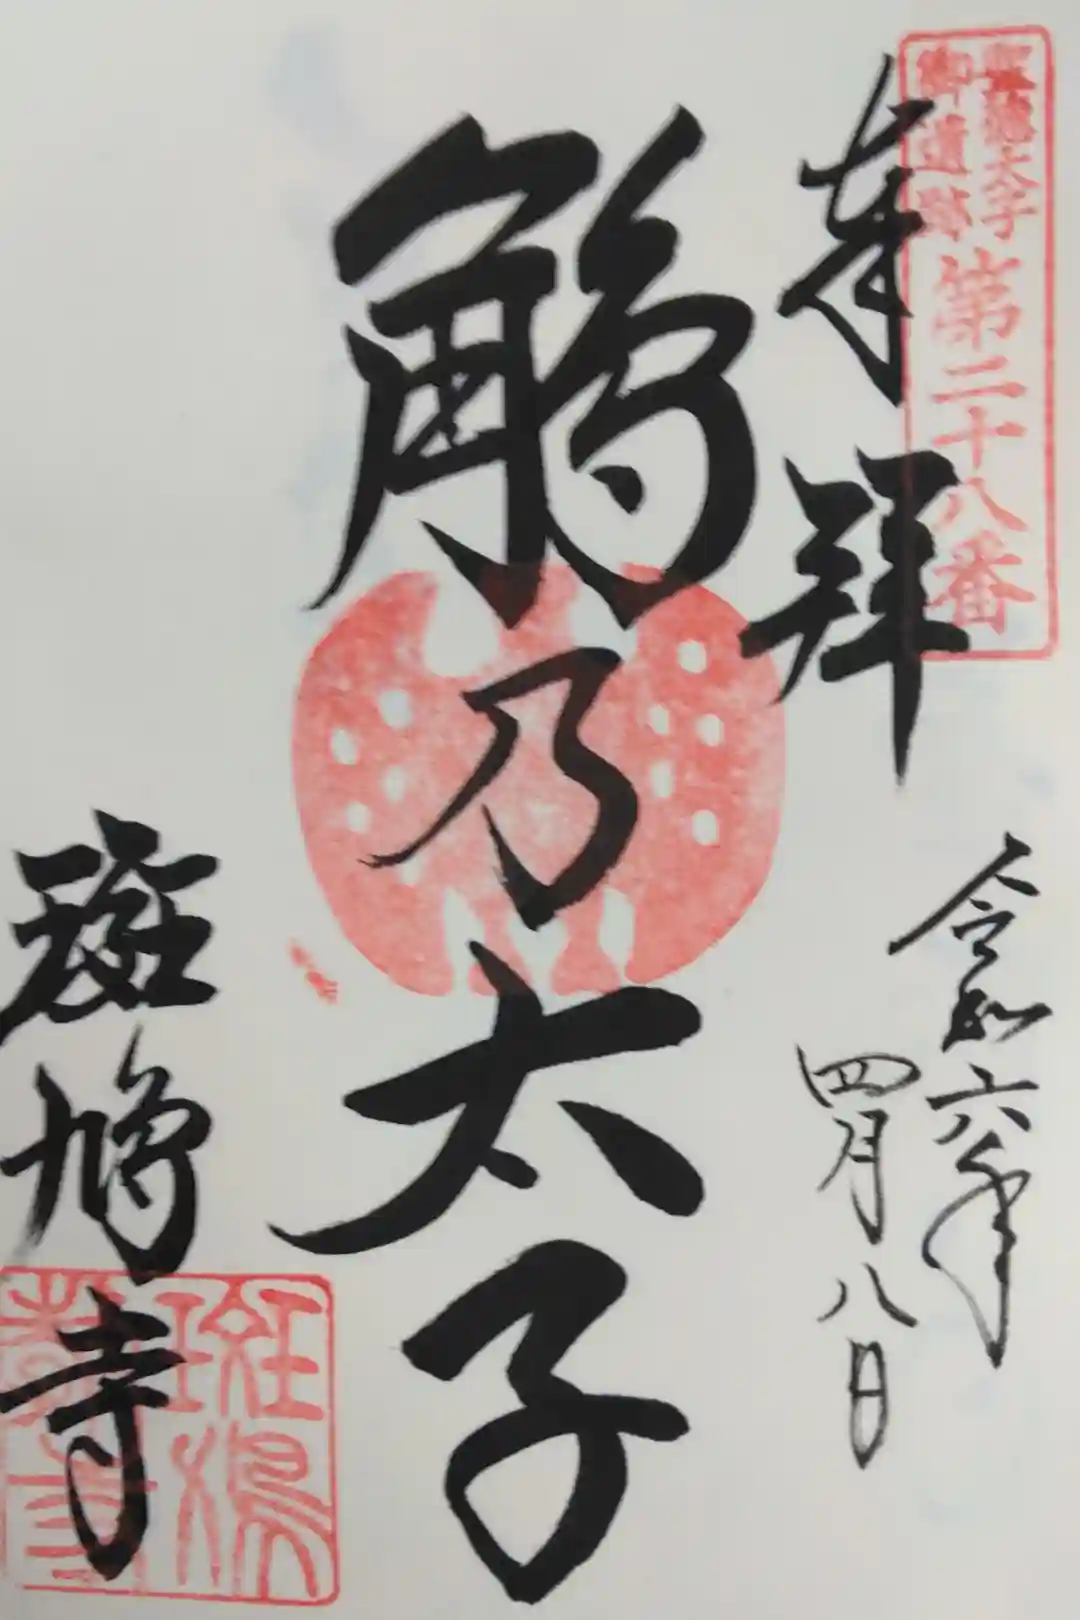 聖徳太子
御遺跡
第二十八番
奉拝
令和六年
四月八日
鵤乃太子
斑鳩寺
斑鳩